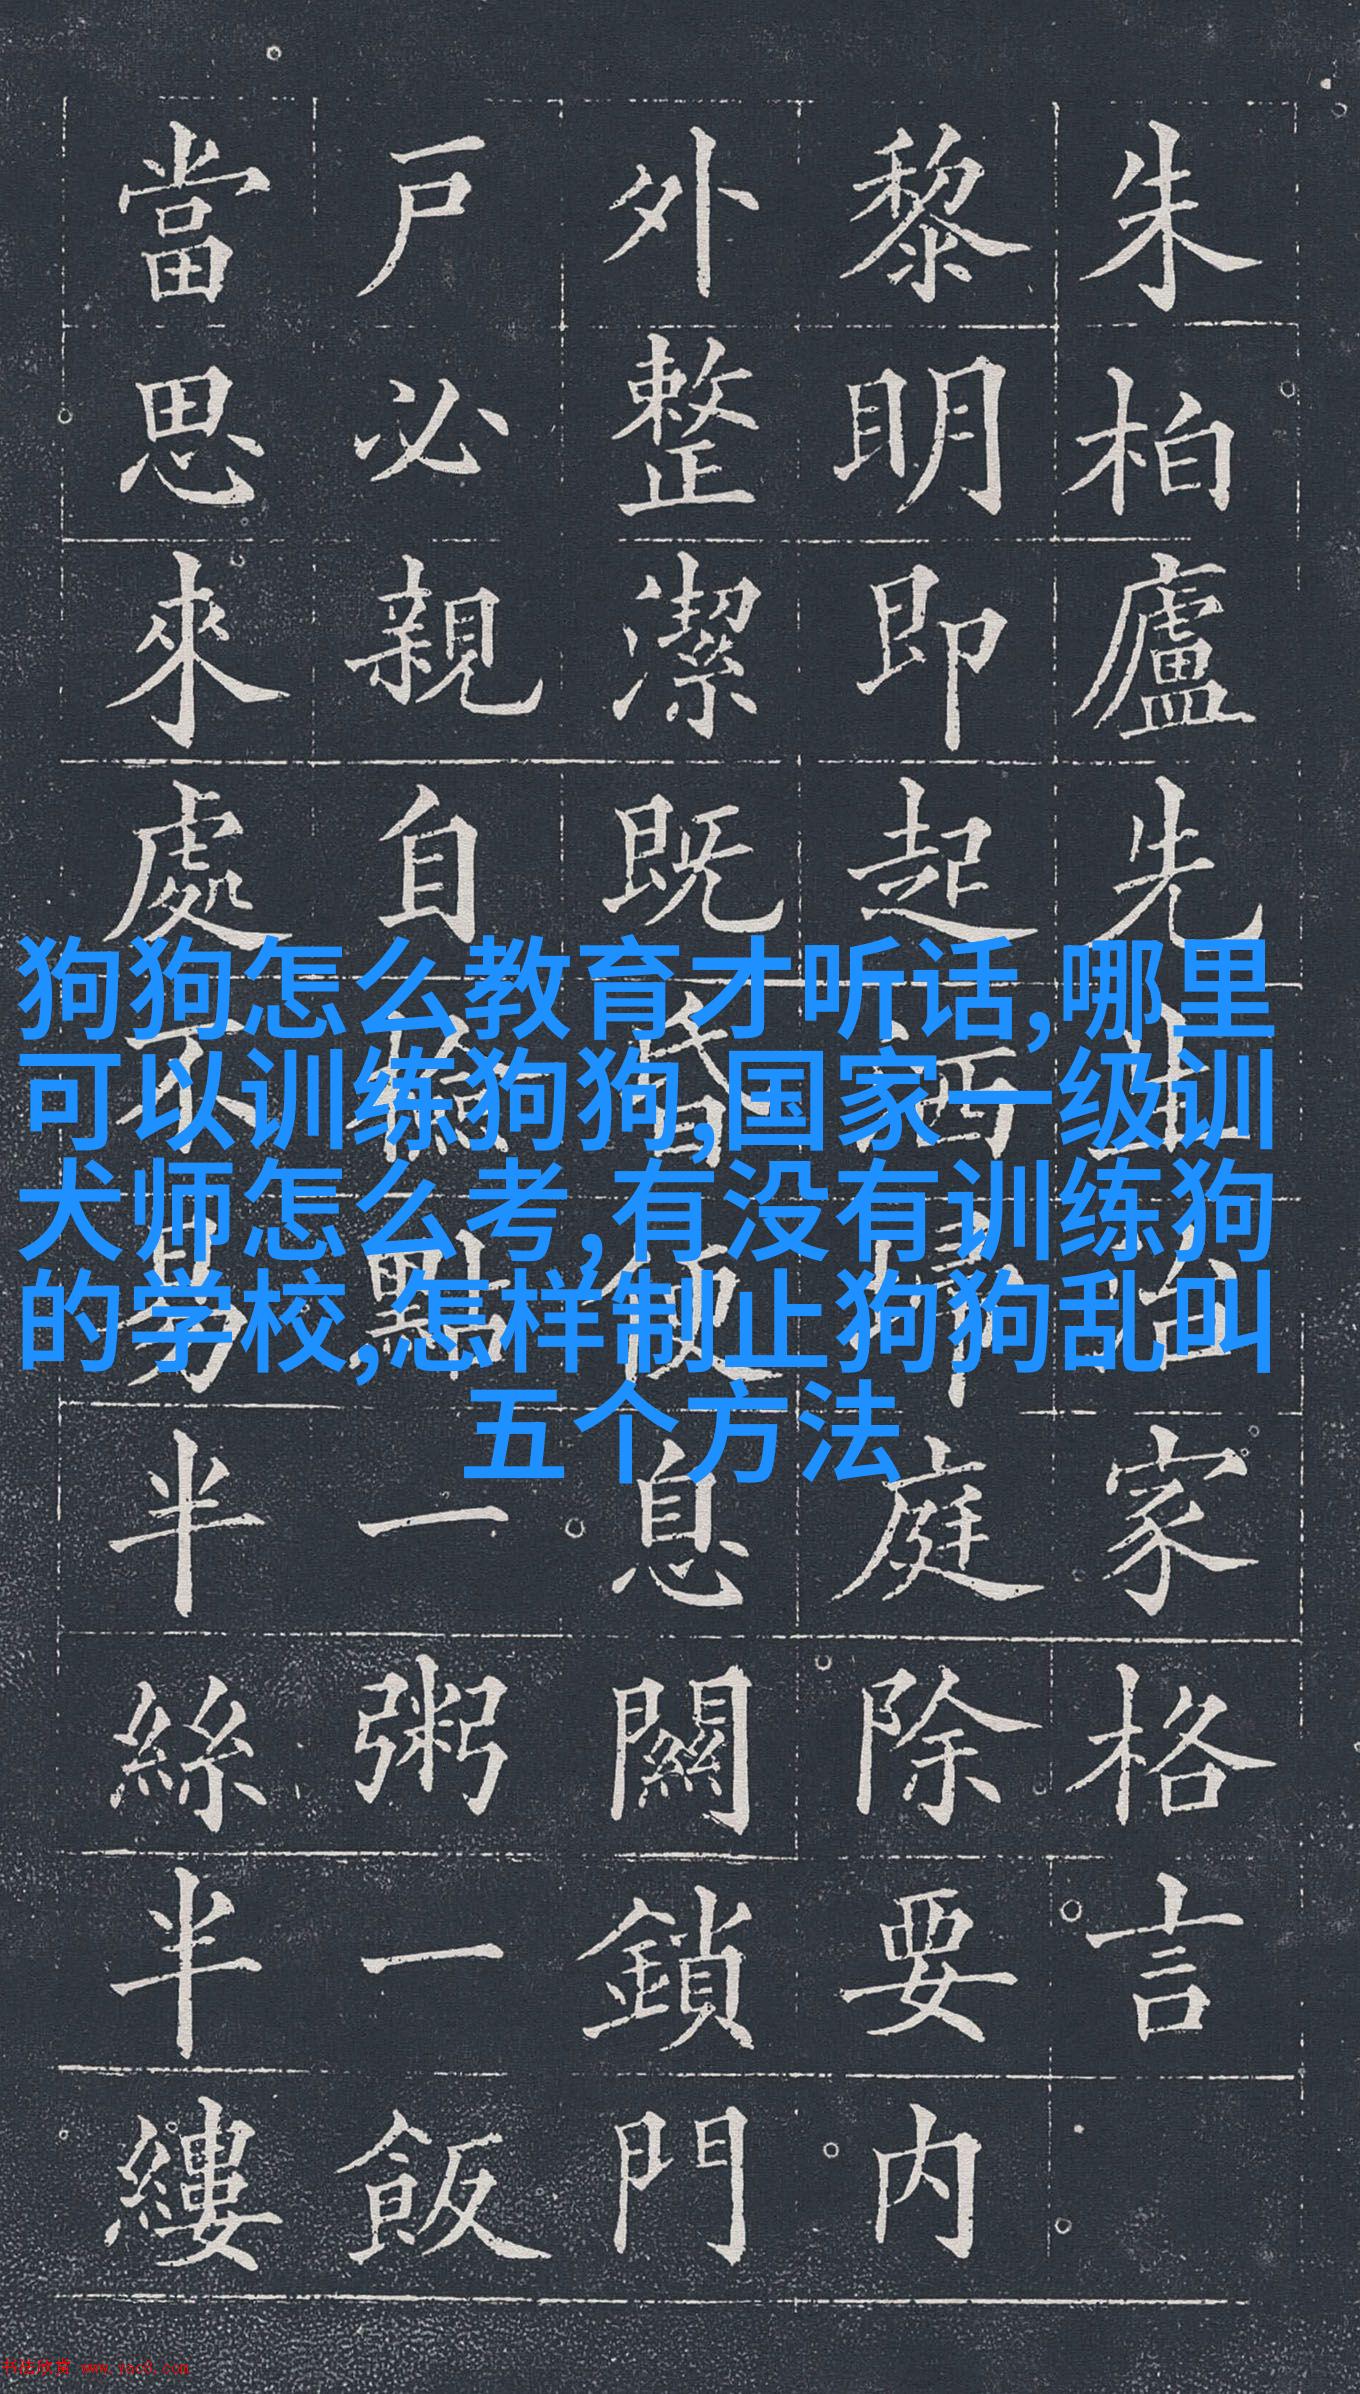 朱柏廬先生治家格言
黎明即起洒掃庭除要内
外整潔既昏便息關鎖門
戶必親自檢點一粥一飯
當思來處不易半絲半縷
狗狗怎么教育才听话,哪里
可以训练狗狗,国家一级训
犬师怎么考,有没有训练狗
的学校,怎样制止狗狗乱叫
五个方法
书法欣赏 www.yac8.com